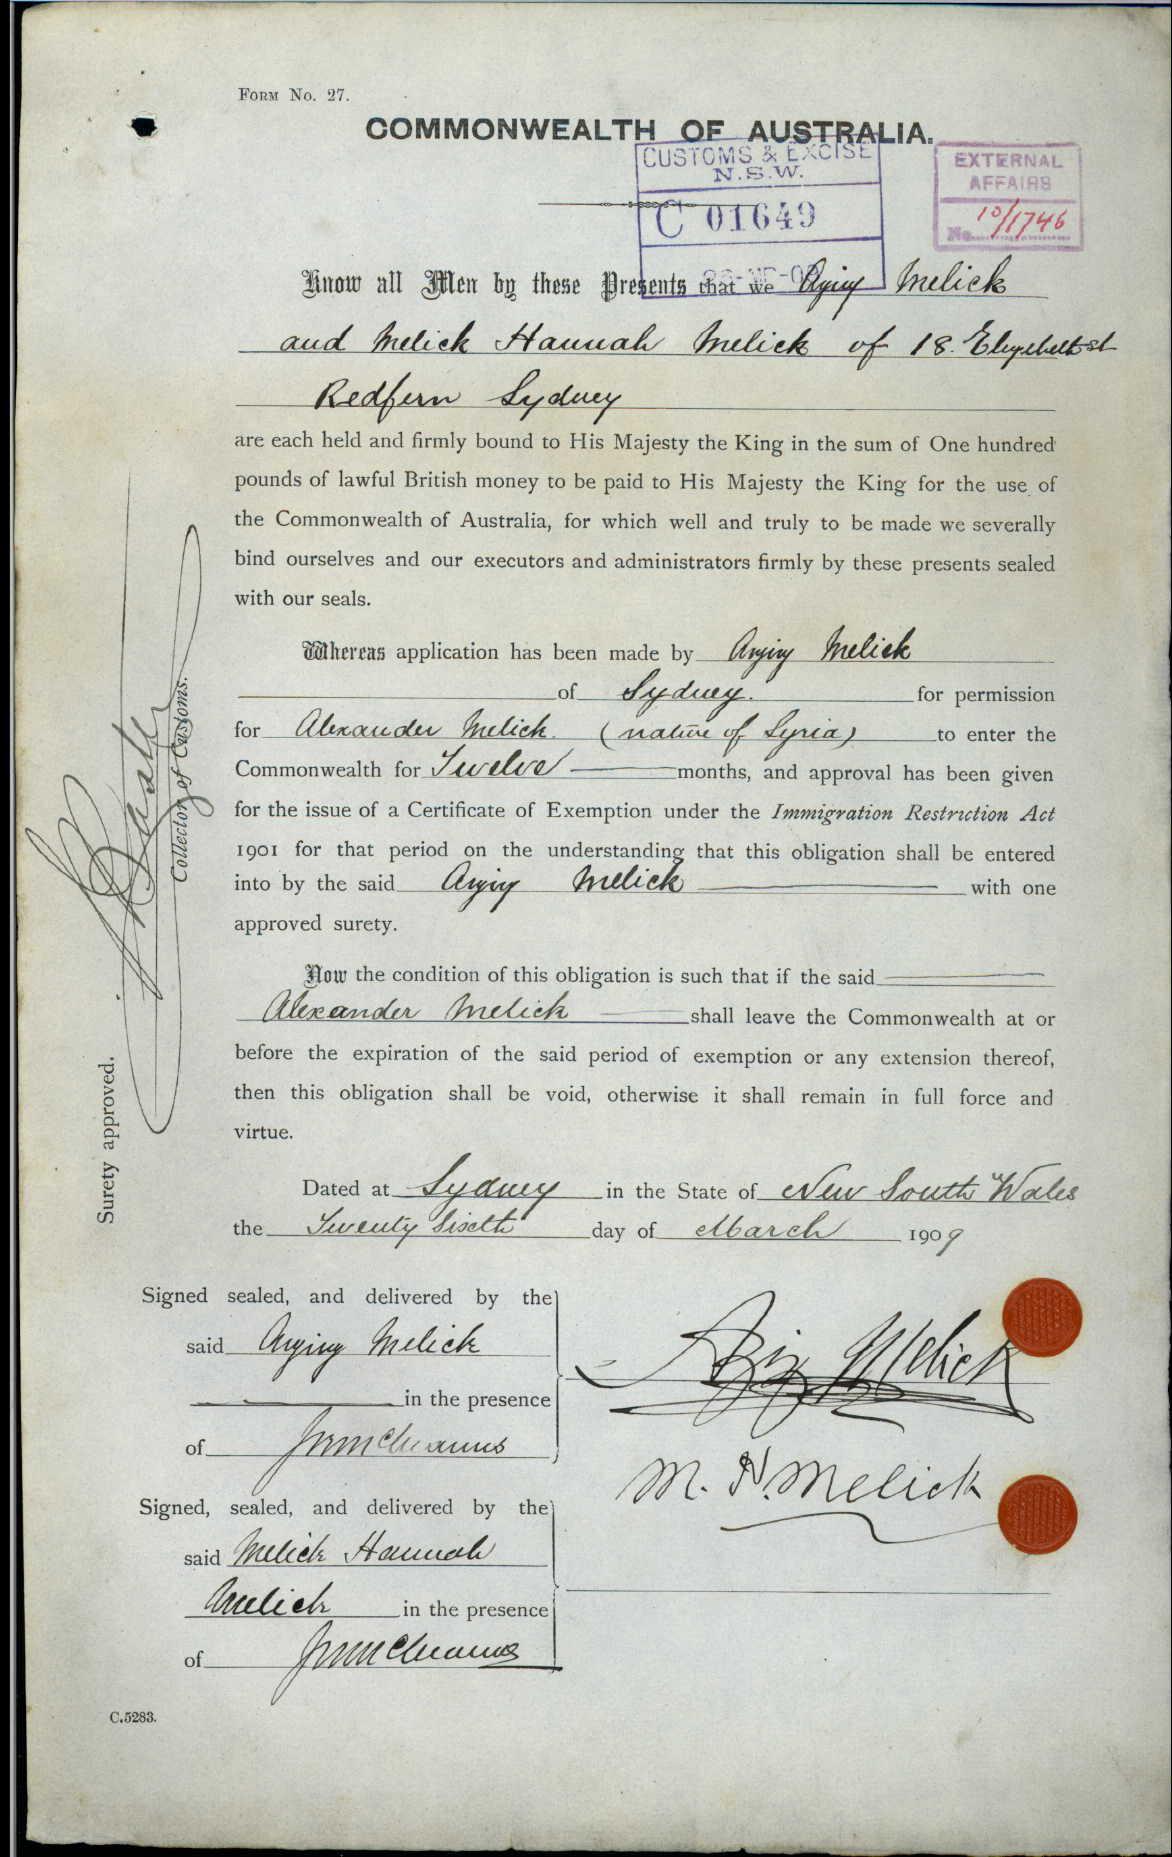 Form No. 27.
COMMONWEALTH OF AUSTRALIA.
CUSTOMS & EXCISE
N.S.W.
C 01649
EXTERNAL
AFFAIRS
No. 10/1746
Know all Men by these Presents that we Azizy Melick
and Melick Hannah Melick of 18. St
Redfern Sydney
are each held and firmly bound to His Majesty the King in the sum of One hundred
pounds of lawful British money to be paid to His Majesty the King for the use of
the Commonwealth of Australia, for which well and truly to be made we severally
bind ourselves and our executors and administrators firmly by these presents sealed
with our seals.
Whereas application has been made by Azizy Melick
of Sydney. for permission
for Alexander Melick. (native of Syria) to enter the
Commonwealth for Twelve months, and approval has been given
for the issue of a Certificate of Exemption under the Immigration Restriction Act
1901 for that period on the understanding that this obligation shall be entered
into by the said Azizy Melick with one
approved surety.
Now the condition of this obligation is such that if the said
Alexander Melick shall leave the Commonwealth at or
before the expiration of the said period of exemption or any extension thereof,
then this obligation shall be void, otherwise it shall remain in full force and
virtue.
Dated at Sydney in the State of New South Wales
the Twenty Sixth day of March 1909
Surety approved.
Collector of Customs.
Signed sealed, and delivered by the
said Azizy Melick
in the presence
of
Aziz Melick
M. H. Melick
Signed, sealed, and delivered by the
said Melick Hannah
Melick in the presence
of
C.5283.